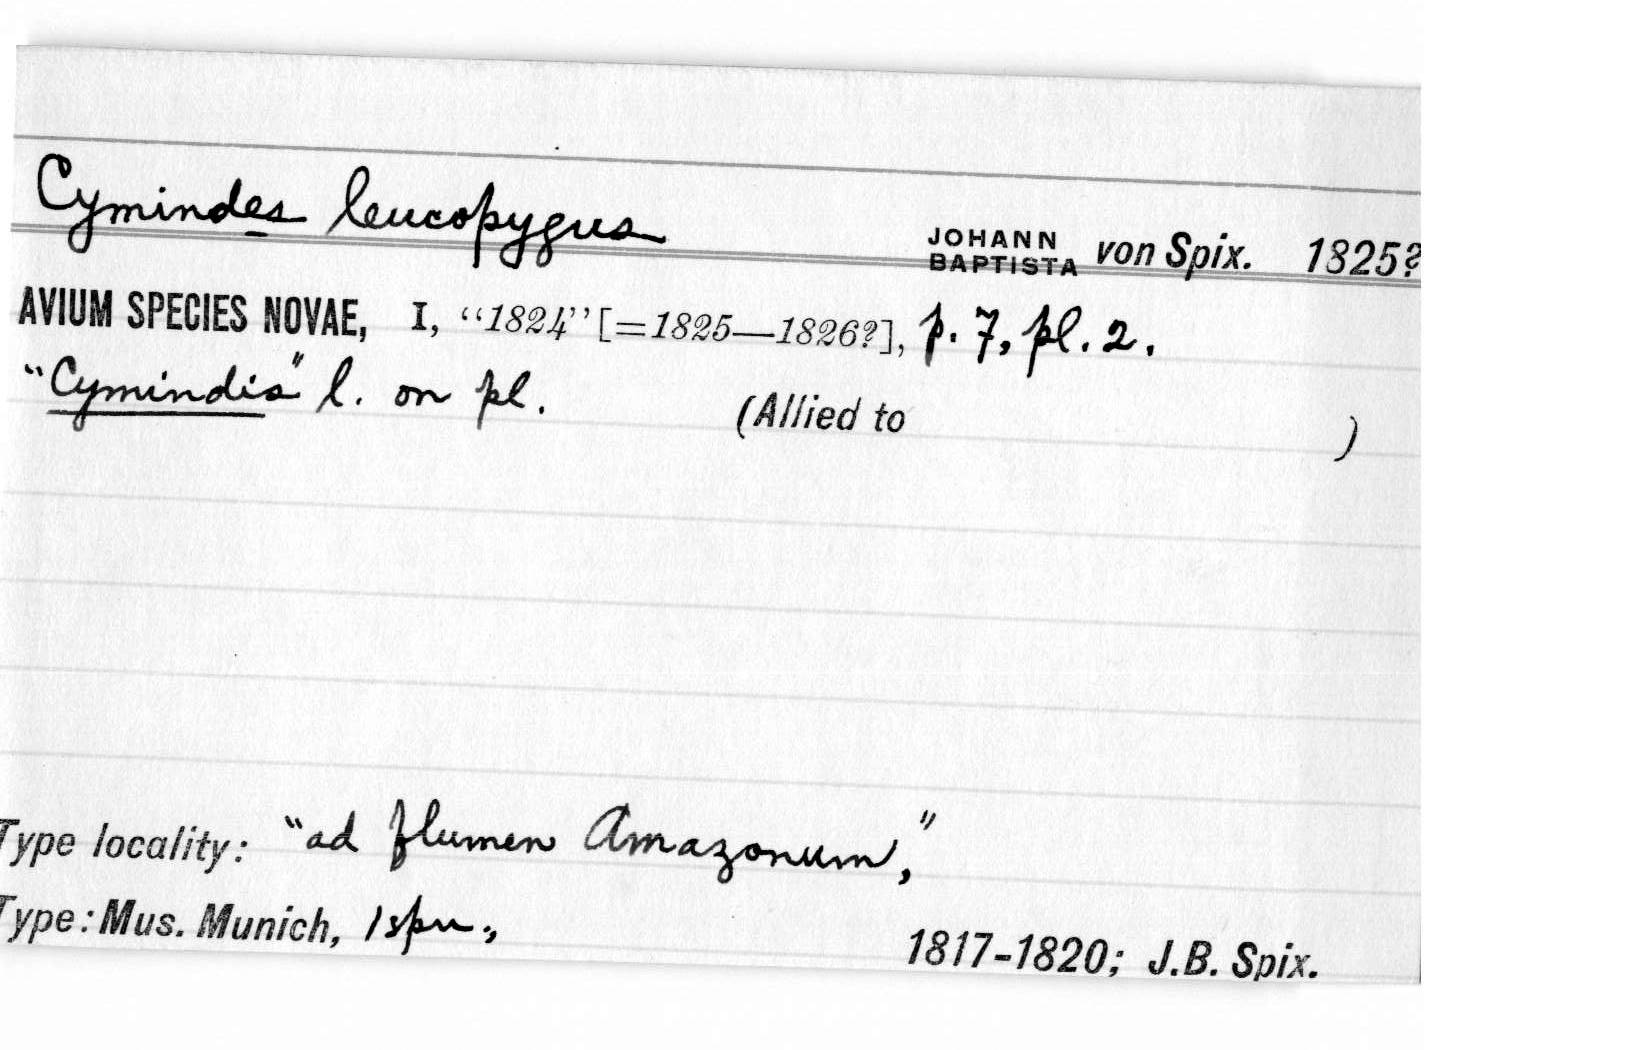 Cymindes leucopygus
JOHANN BAPTISTA von Spix. 1825?
AVIUM SPECIES NOVAE, I, "1824" [=1825—1826?], p. 7, pl. 2.
"Cymindis" l. on pl. (Allied to )
Type locality: "ad flumen Amazonum,"
Type: Mus. Munich, 1 spn., 1817-1820; J.B. Spix.